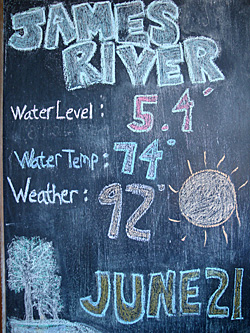 JAMES
RIVER
Water Level: 5.4'
Water Temp: 74°
Weather: 92°
JUNE 21